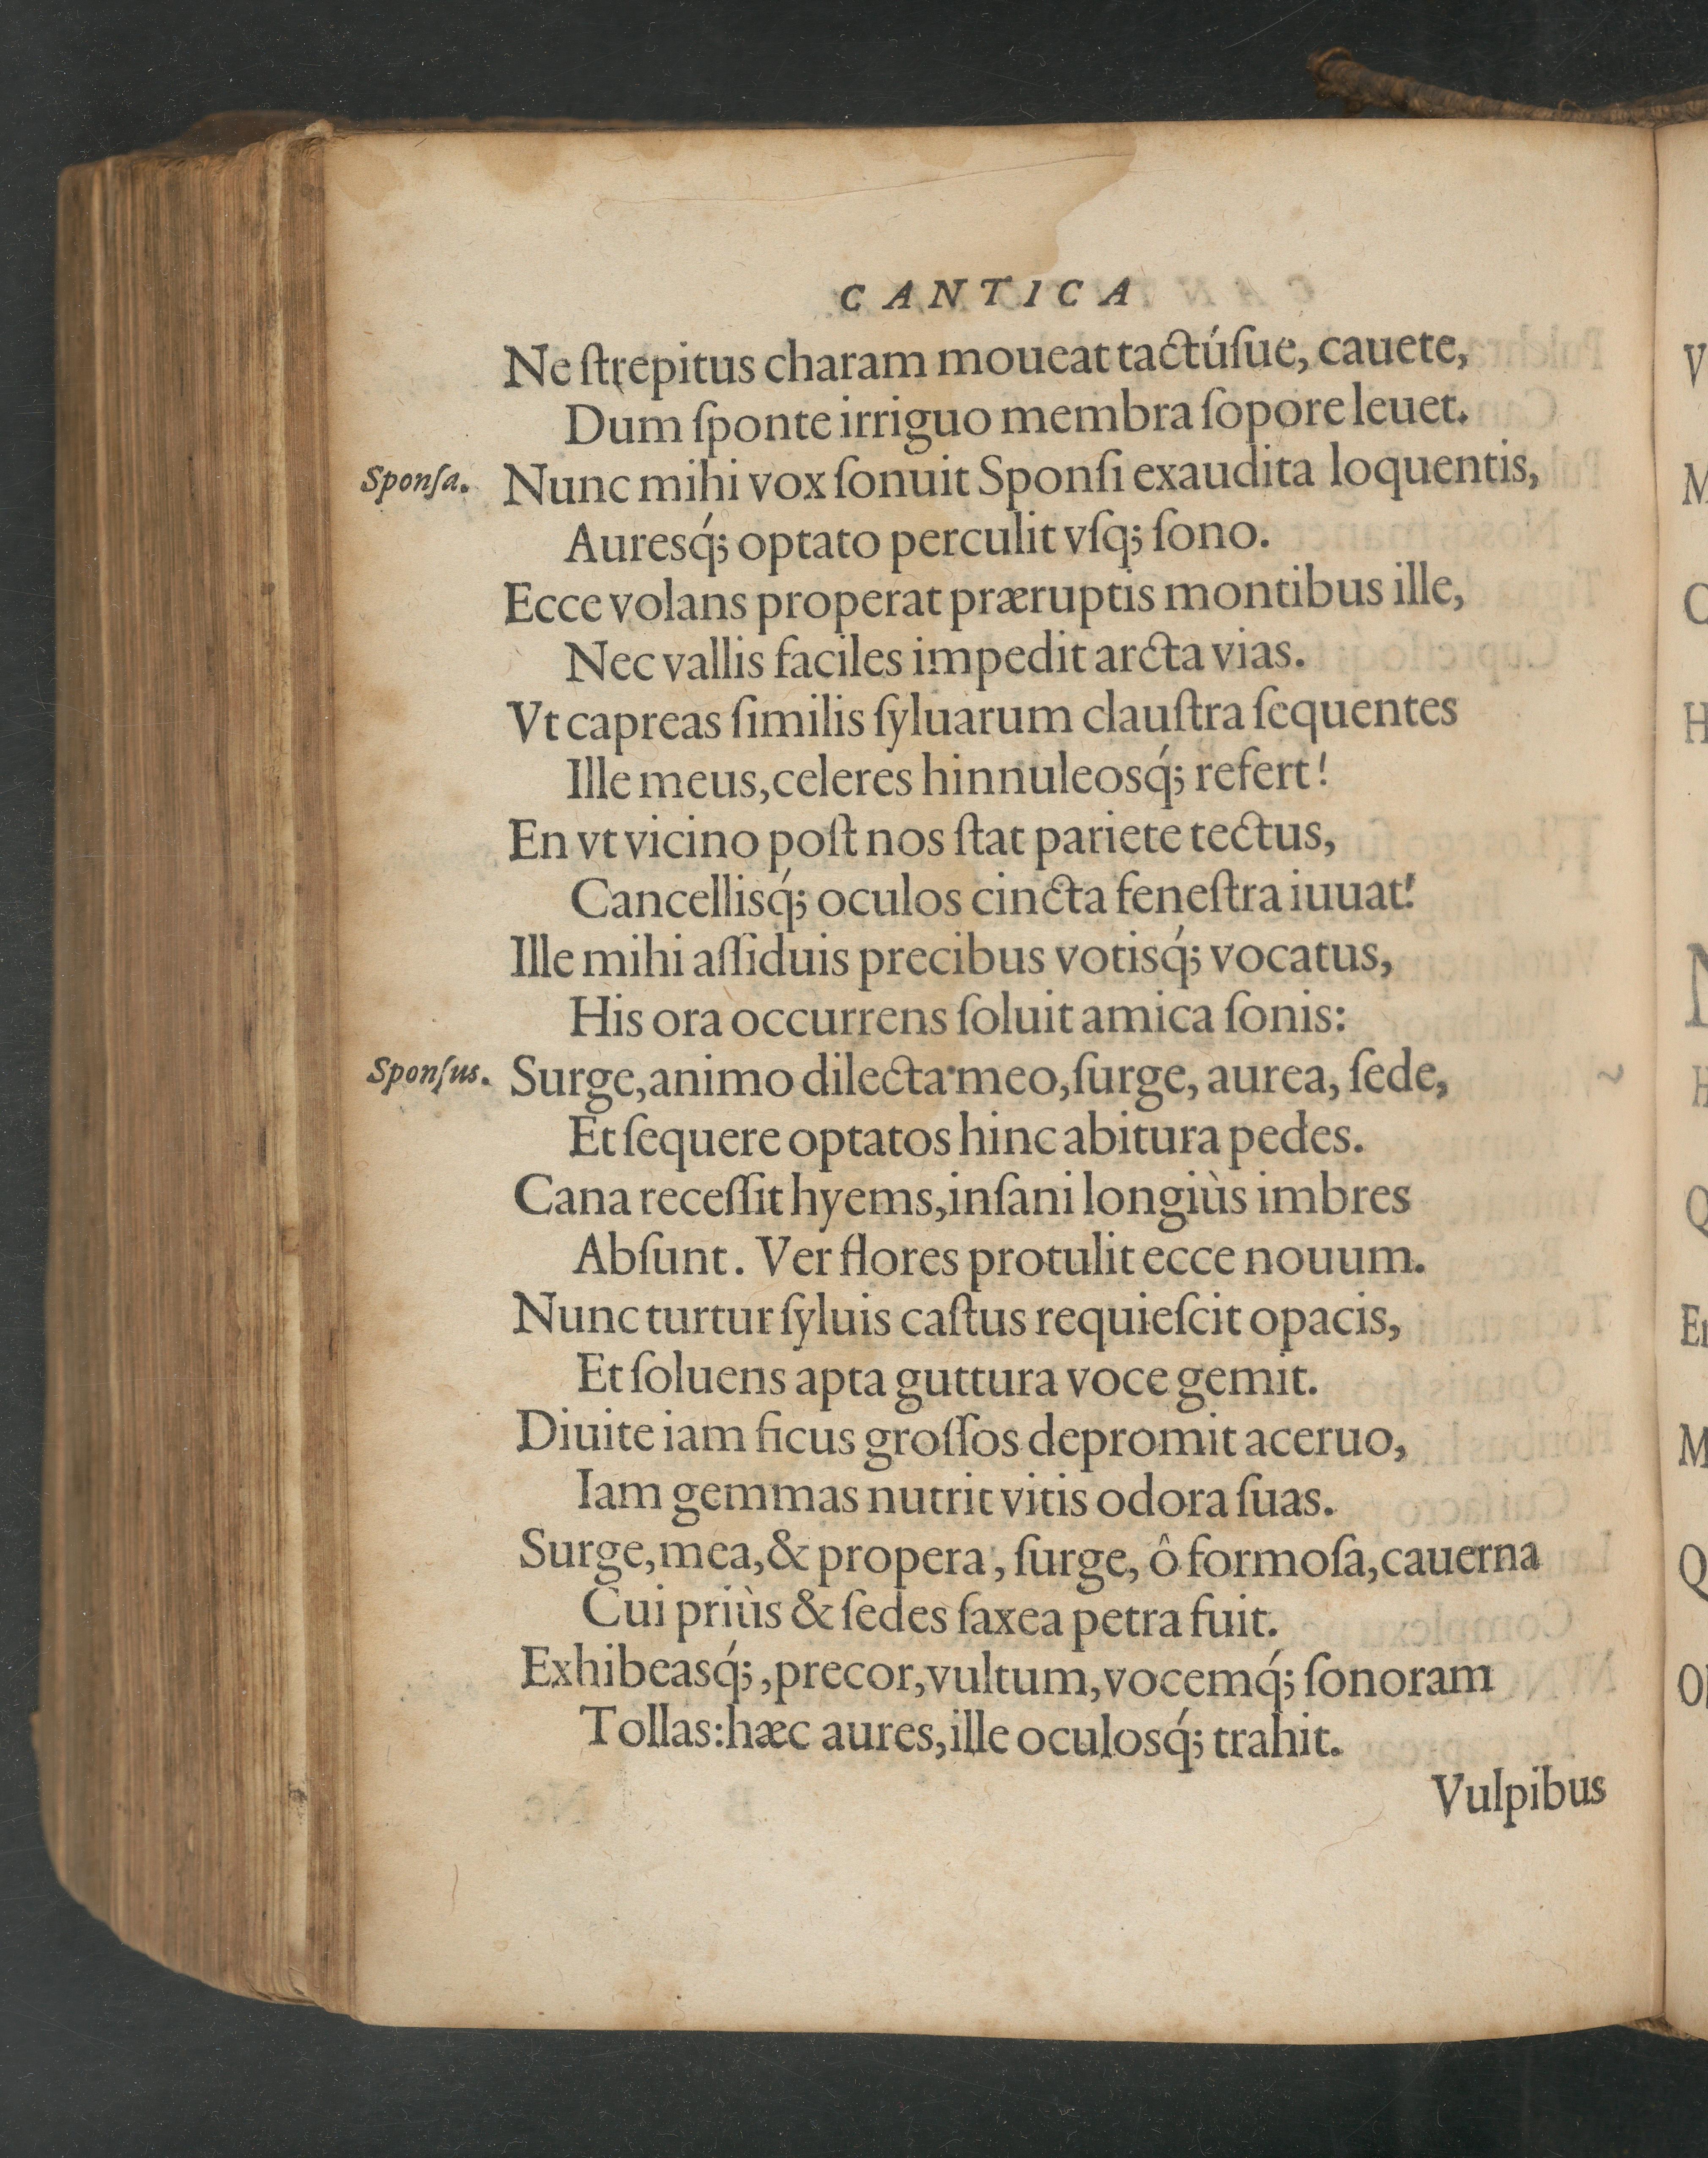 CANTICA
Ne ſtrepitus charam moueat tactúſue, cauete,
Dum ſponte irriguo membra ſopore leuet.
Sponſa. Nunc mihi vox ſonuit Sponſi exaudita loquentis,
Auresq́; optato perculit vſq; ſono.
Ecce volans properat præruptis montibus ille,
Nec vallis faciles impedit arcta vias.
Vt capreas ſimilis ſyluarum clauſtra ſequentes
Ille meus, celeres hinnuleosq́; refert!
En vt vicino poſt nos ſtat pariete tectus,
Cancellisq́; oculos cincta feneſtra iuuat!
Ille mihi aſſiduis precibus votisq́; vocatus,
His ora occurrens ſoluit amica ſonis:
Sponſus. Surge, animo dilecta meo, ſurge, aurea, ſede,
Et ſequere optatos hinc abitura pedes.
Cana receſſit hyems, inſani longiùs imbres
Abſunt. Ver flores protulit ecce nouum.
Nunc turtur ſyluis caſtus requieſcit opacis,
Et ſoluens apta guttura voce gemit.
Diuite iam ficus groſſos depromit aceruo,
Iam gemmas nutrit vitis odora ſuas.
Surge, mea, & propera, ſurge, ô formoſa, cauerna
Cui priùs & ſedes ſaxea petra fuit.
Exhibeasq́;, precor, vultum, vocemq́; ſonoram
Tollas: hæc aures, ille oculosq́; trahit.
Vulpibus